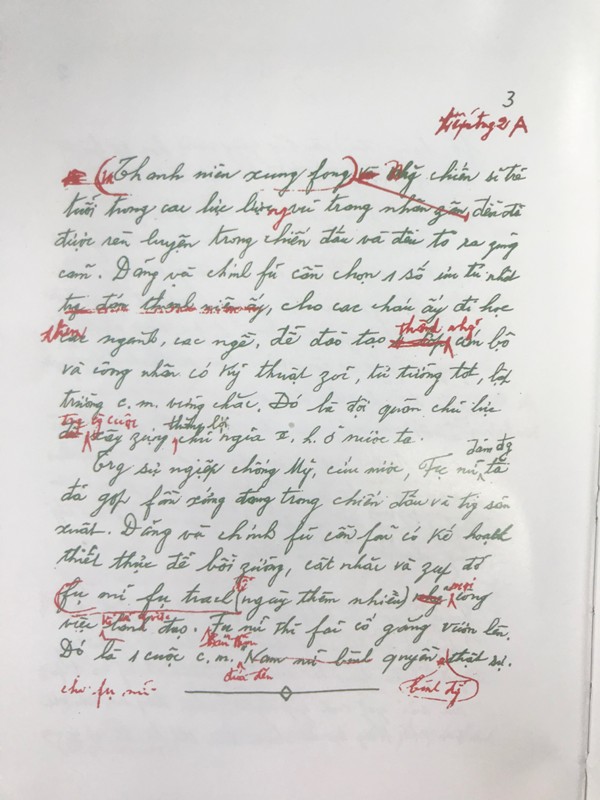 3
tiếp trg 2 A
Thanh niên xung fong và những chiến sĩ trẻ
tuổi trong các lực lượng vũ trang nhân zân, đều đã
được rèn luyện trong chiến đấu và đều tỏ ra zũng
cảm. Đảng và chính fủ cần chọn 1 số ưu tú nhất
, cho các cháu ấy đi học
thêm các ngành, các ngề, để đào tạo thành những cán bộ
và công nhân có kỹ thuật zỏi, tư tưởng tốt, lập
trường c.m. vững chắc. Đó là đội quân chủ lực
trg công cuộc xây zựng thắng lợi chủ ngĩa x.h. ở nước ta.
Trg sự ngiệp chống Mỹ, cứu nước, fụ nữ đảm đg ta
đã góp fần xứng đáng trong chiến đấu và trg sản
xuất. Đảng và chính fủ cần fải có kế hoạch
thiết thực để bồi zưỡng, cất nhắc và zúp đỡ
để ngày thêm nhiều fụ nữ fụ trách mọi công
việc kể cả việc lãnh đạo. Fụ nữ thì fải cố gắng vươn lên.
Đó là 1 cuộc c.m. đưa đến Nam nữ bình quyền thật sự.
cho fụ nữ
bình đg